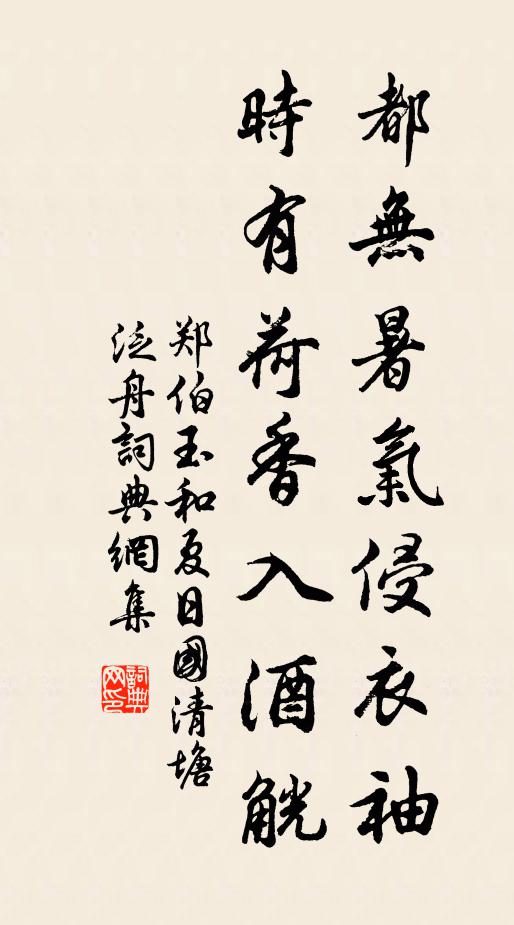 都無暑氣侵衣袖
時有荷香入酒觥
郑伯玉和夏日國清塘
泛舟詞典網集
詞典网印